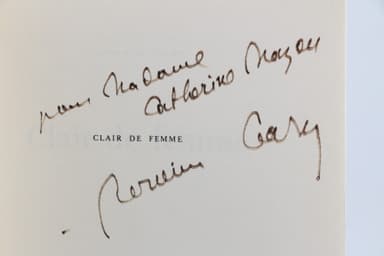 pour Madame
Catherine
CLAIR DE FEMME
Romain Gary